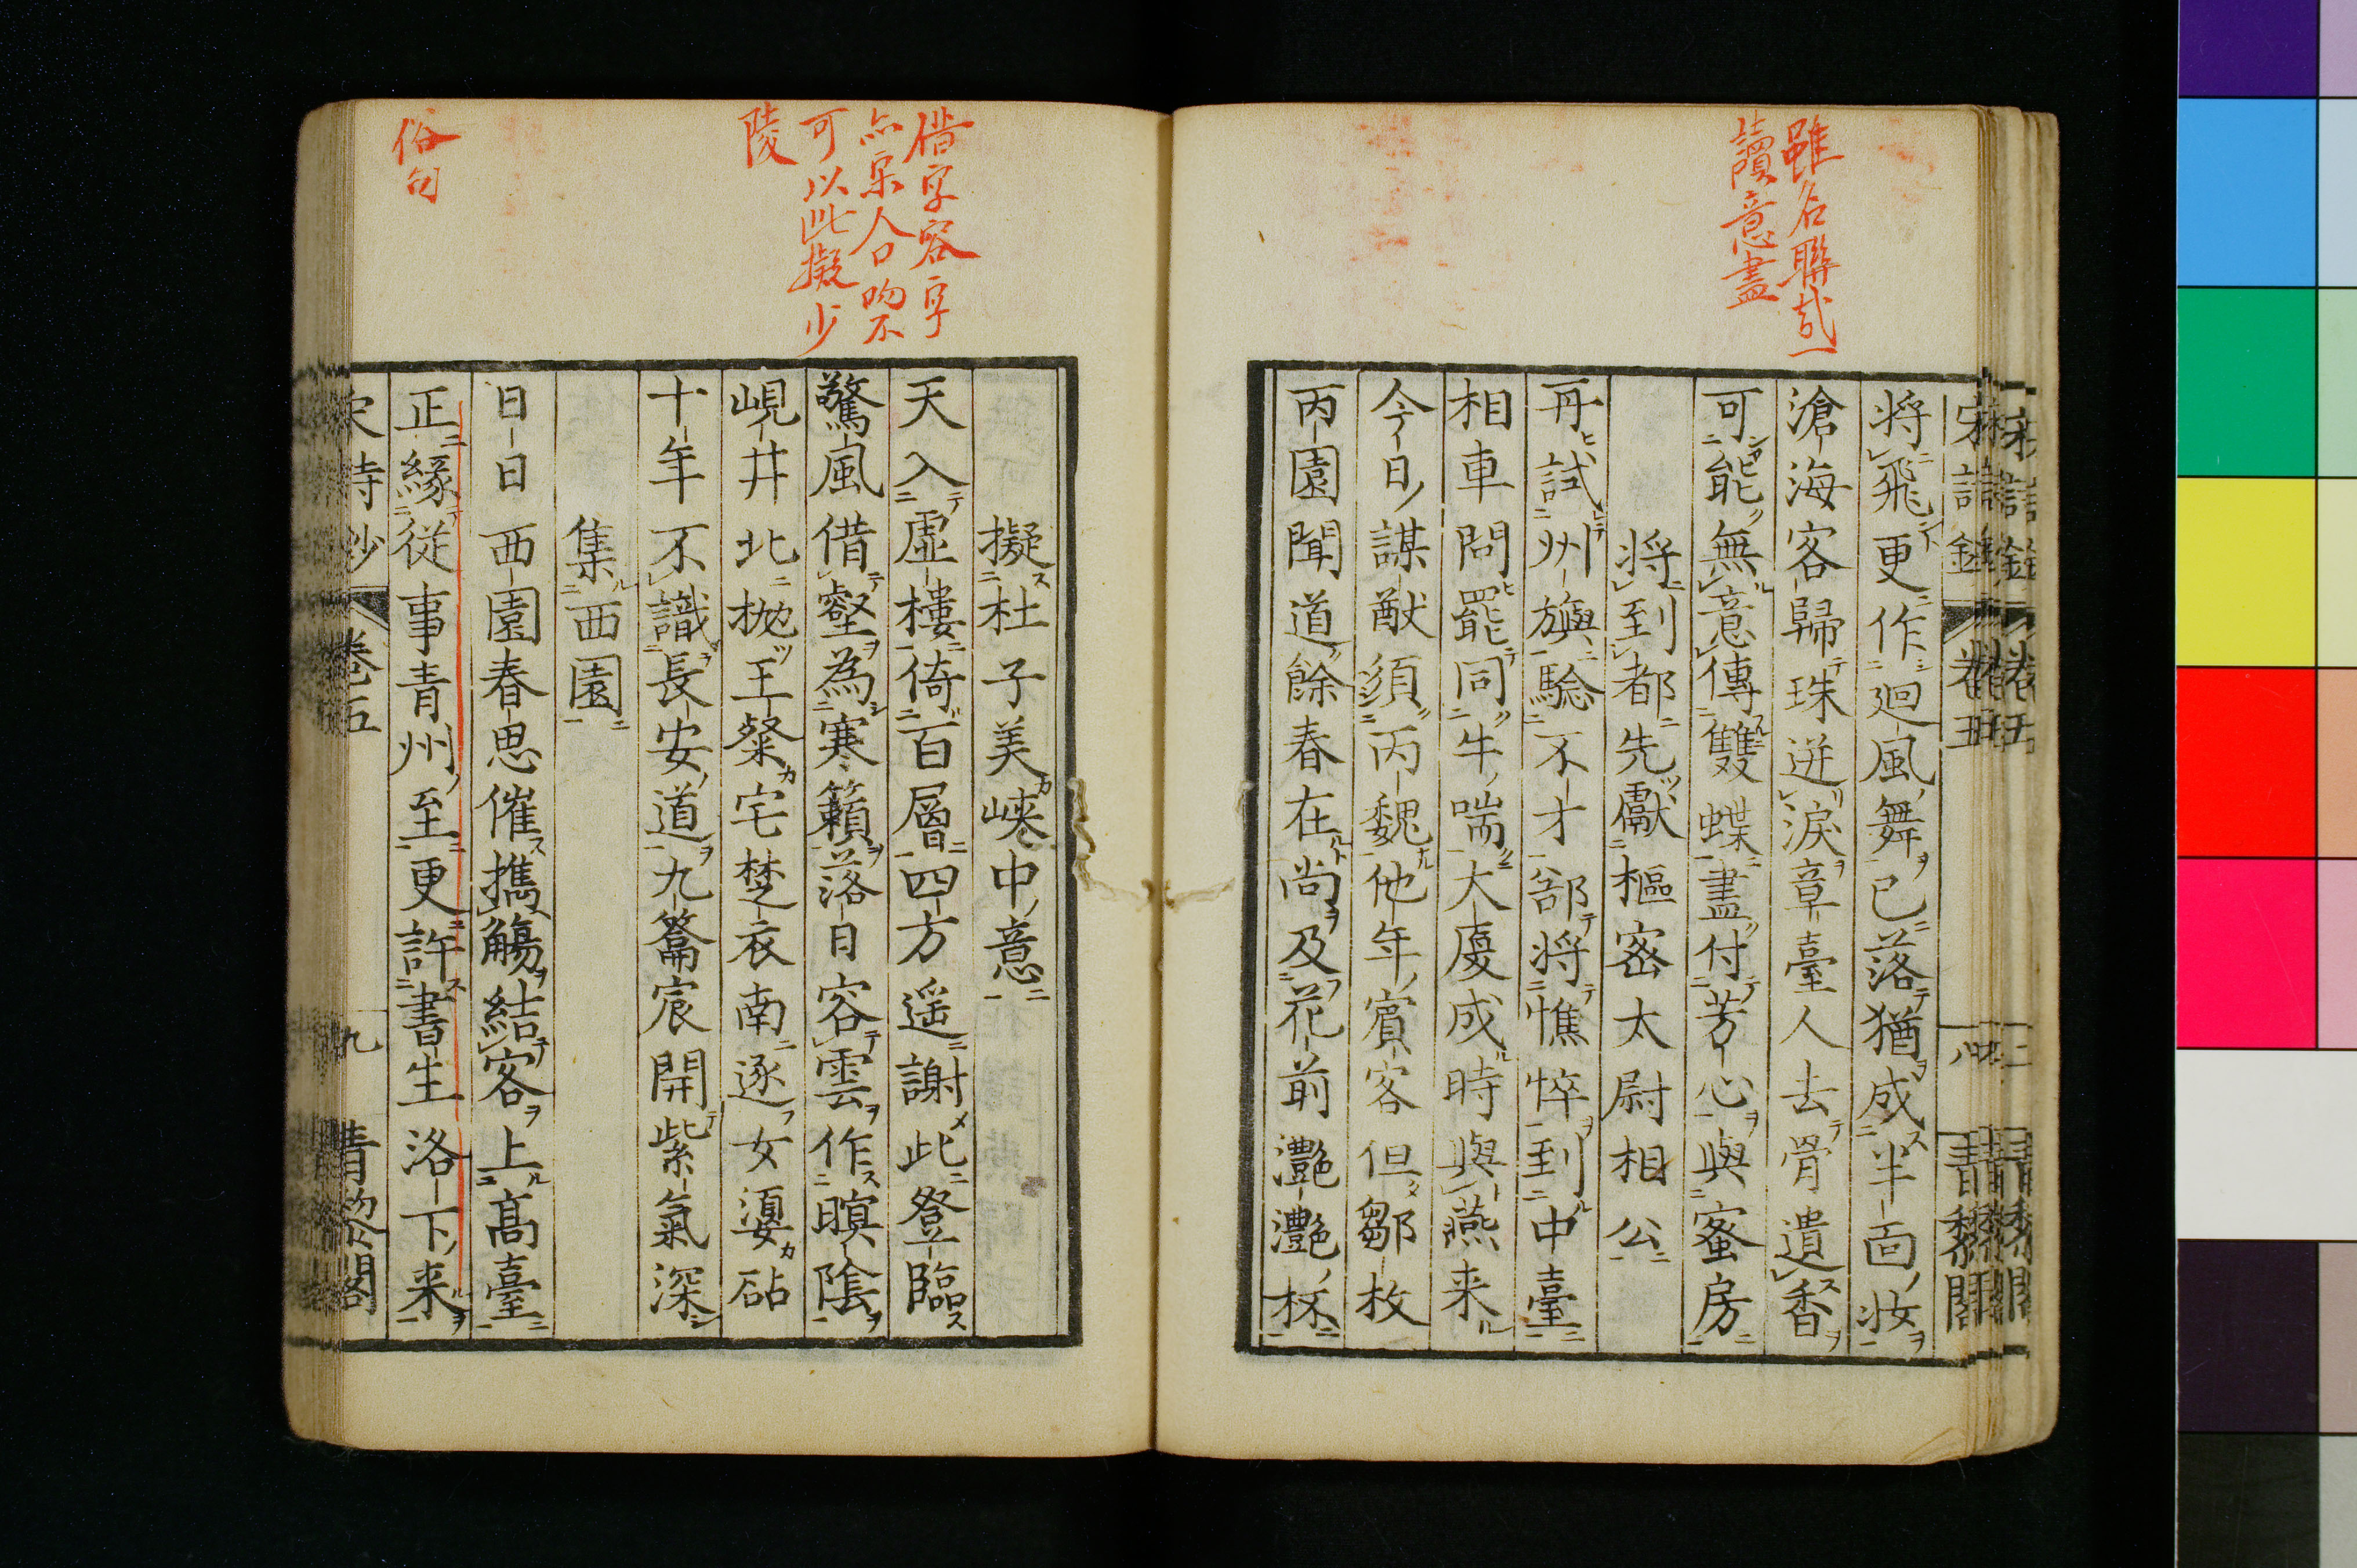 雖名聯哉一
讀意盡
將飛更作迴風舞已落猶成半面妝
滄海客歸珠迸淚章臺人去骨遺香
可能無意傳雙蝶盡付芳心與蜜房
將到都先獻樞密太尉相公
再試州旟驗不才郤將憔悴到中臺
相車問罷同牛喘大廈成時與燕来
今日謀猷須丙魏他年賓客但鄒枚
丙園聞道餘春在尚及花前灔灔杯
借字容字
亦宋人口吻不
可以此擬少
陵
擬杜子美峽中意
天入虛樓倚百層四方遥謝此登臨
驚風借壑為寒籟落日容雲作暝陰
峴井北抛王粲宅楚衣南逐女嬃砧
十年不識長安道九籥宸開紫氣深
集西園
日日西園春思催攜觴結客上高臺
俗句
正緣從事青州至更許書生洛下来
宋詩鈔 卷五 九 青黎閣